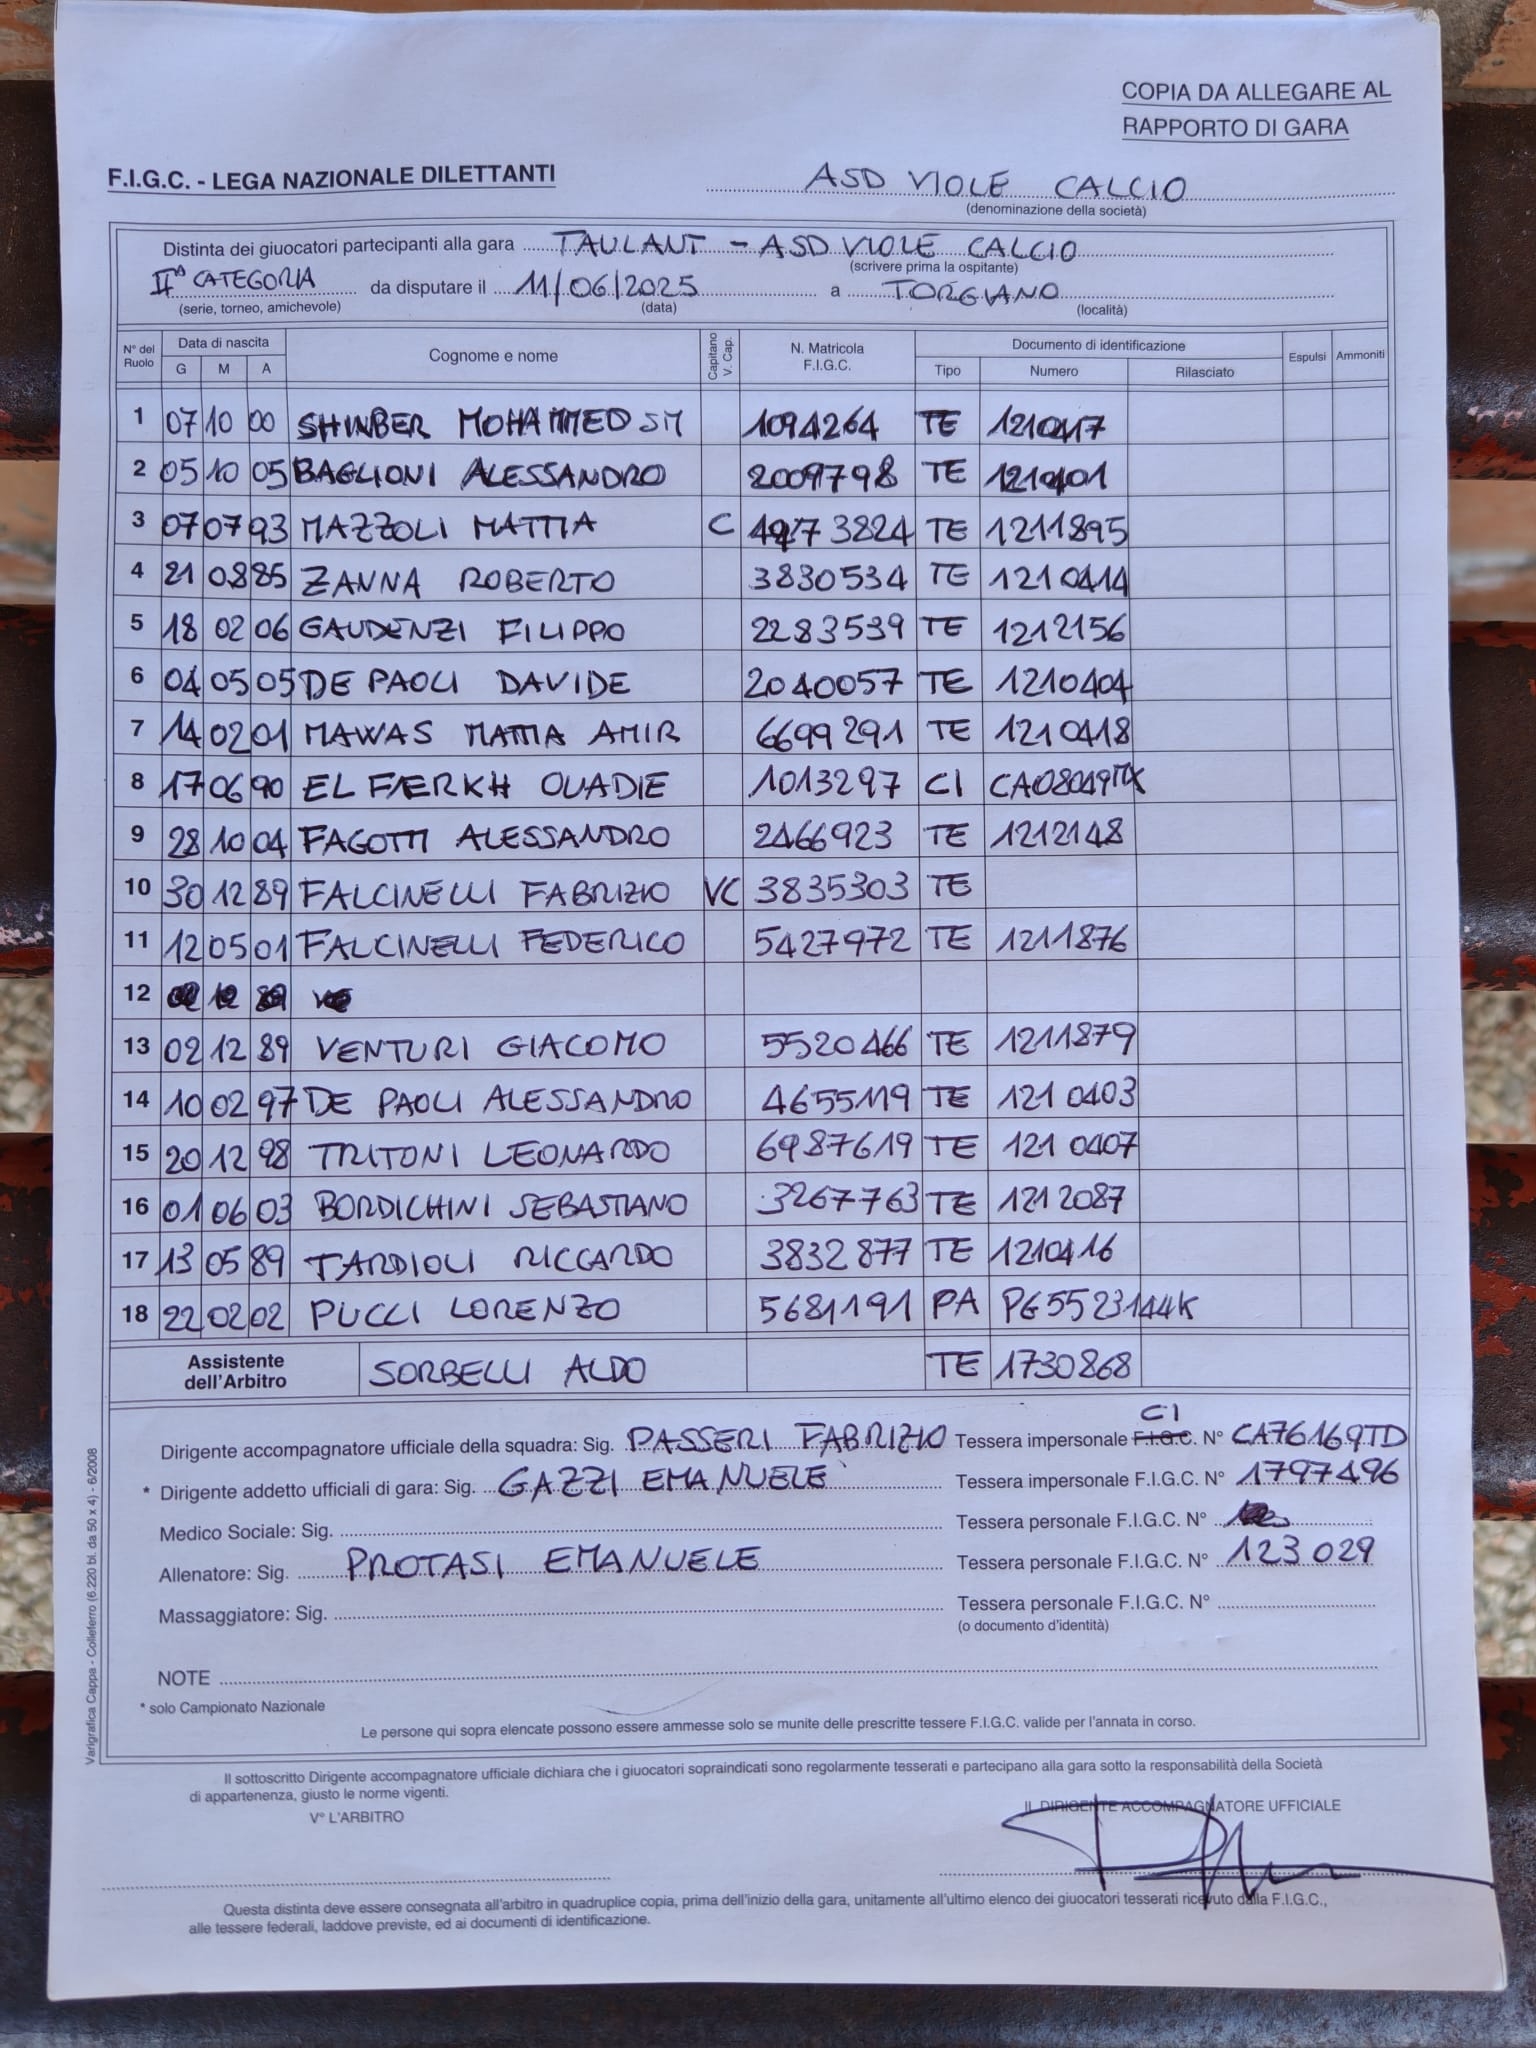 COPIA DA ALLEGARE AL
RAPPORTO DI GARA
F.I.G.C. - LEGA NAZIONALE DILETTANTI ASD VIOLE CALCIO
(denominazione della società)
Distinta dei giuocatori partecipanti alla gara TAULANT - ASD VIOLE CALCIO
(scrivere prima la ospitante)
IIª CATEGORIA da disputare il 11/06/2025 a TORGIANO
(serie, torneo, amichevole) (data) (località)
N° del Ruolo Data di nascita G M A Cognome e nome Capitano V. Cap. N. Matricola F.I.G.C. Documento di identificazione Tipo Numero Rilasciato Espulsi Ammoniti
1 07 10 00 SHINBER MOHAMMED SM 1094264 TE 1210417
2 05 10 05 BAGLIONI ALESSANDRO 2009798 TE 1210401
3 07 07 93 MAZZOLI MATTIA C 3824 TE 1211895
4 21 08 85 ZANNA ROBERTO 3830534 TE 1210414
5 18 02 06 GAUDENZI FILIPPO 2283539 TE 1212156
6 04 05 05 DE PAOLI DAVIDE 2040057 TE 1210404
7 14 02 01 MAWAS MATTIA AMIR 6699291 TE 1210418
8 17 06 90 EL FAERKH OUADIE 1013297 CI
9 28 10 04 FAGOTTI ALESSANDRO 2466923 TE 1212148
10 30 12 89 FALCINELLI FABRIZIO VC 3835303 TE
11 12 05 01 FALCINELLI FEDERICO 5427972 TE 1211876
12
13 02 12 89 VENTURI GIACOMO 5520466 TE 1211879
14 10 02 97 DE PAOLI ALESSANDRO 4655119 TE 1210403
15 20 12 98 TRITONI LEONARDO 6987619 TE 1210407
16 01 06 03 BORDICHINI SEBASTIANO 3267763 TE 1212087
17 13 05 89 TARDIOLI RICCARDO 3832877 TE 1210416
18 22 02 02 PUCCI LORENZO 5681191 PA PG5523144K
Assistente dell'Arbitro SORBELLI ALDO TE 1730868
Dirigente accompagnatore ufficiale della squadra: Sig. PASSERI FABRIZIO Tessera impersonale F.I.G.C. CI N° CA76169TD
* Dirigente addetto ufficiali di gara: Sig. GAZZI EMANUELE Tessera impersonale F.I.G.C. N° 1797496
Medico Sociale: Sig. Tessera personale F.I.G.C. N°
Allenatore: Sig. PROTASI EMANUELE Tessera personale F.I.G.C. N° 123029
Massaggiatore: Sig. Tessera personale F.I.G.C. N°
(o documento d'identità)
NOTE
* solo Campionato Nazionale
Le persone qui sopra elencate possono essere ammesse solo se munite delle prescritte tessere F.I.G.C. valide per l'annata in corso.
Il sottoscritto Dirigente accompagnatore ufficiale dichiara che i giuocatori sopraindicati sono regolarmente tesserati e partecipano alla gara sotto la responsabilità della Società
di appartenenza, giusto le norme vigenti.
V° L'ARBITRO IL DIRIGENTE ACCOMPAGNATORE UFFICIALE
Questa distinta deve essere consegnata all'arbitro in quadruplice copia, prima dell'inizio della gara, unitamente all'ultimo elenco dei giuocatori tesserati ricevuto dalla F.I.G.C.,
alle tessere federali, laddove previste, ed ai documenti di identificazione.
Varigrafica Cappa - Colleferro (6.220 bl. da 50 x 4) - 6/2008